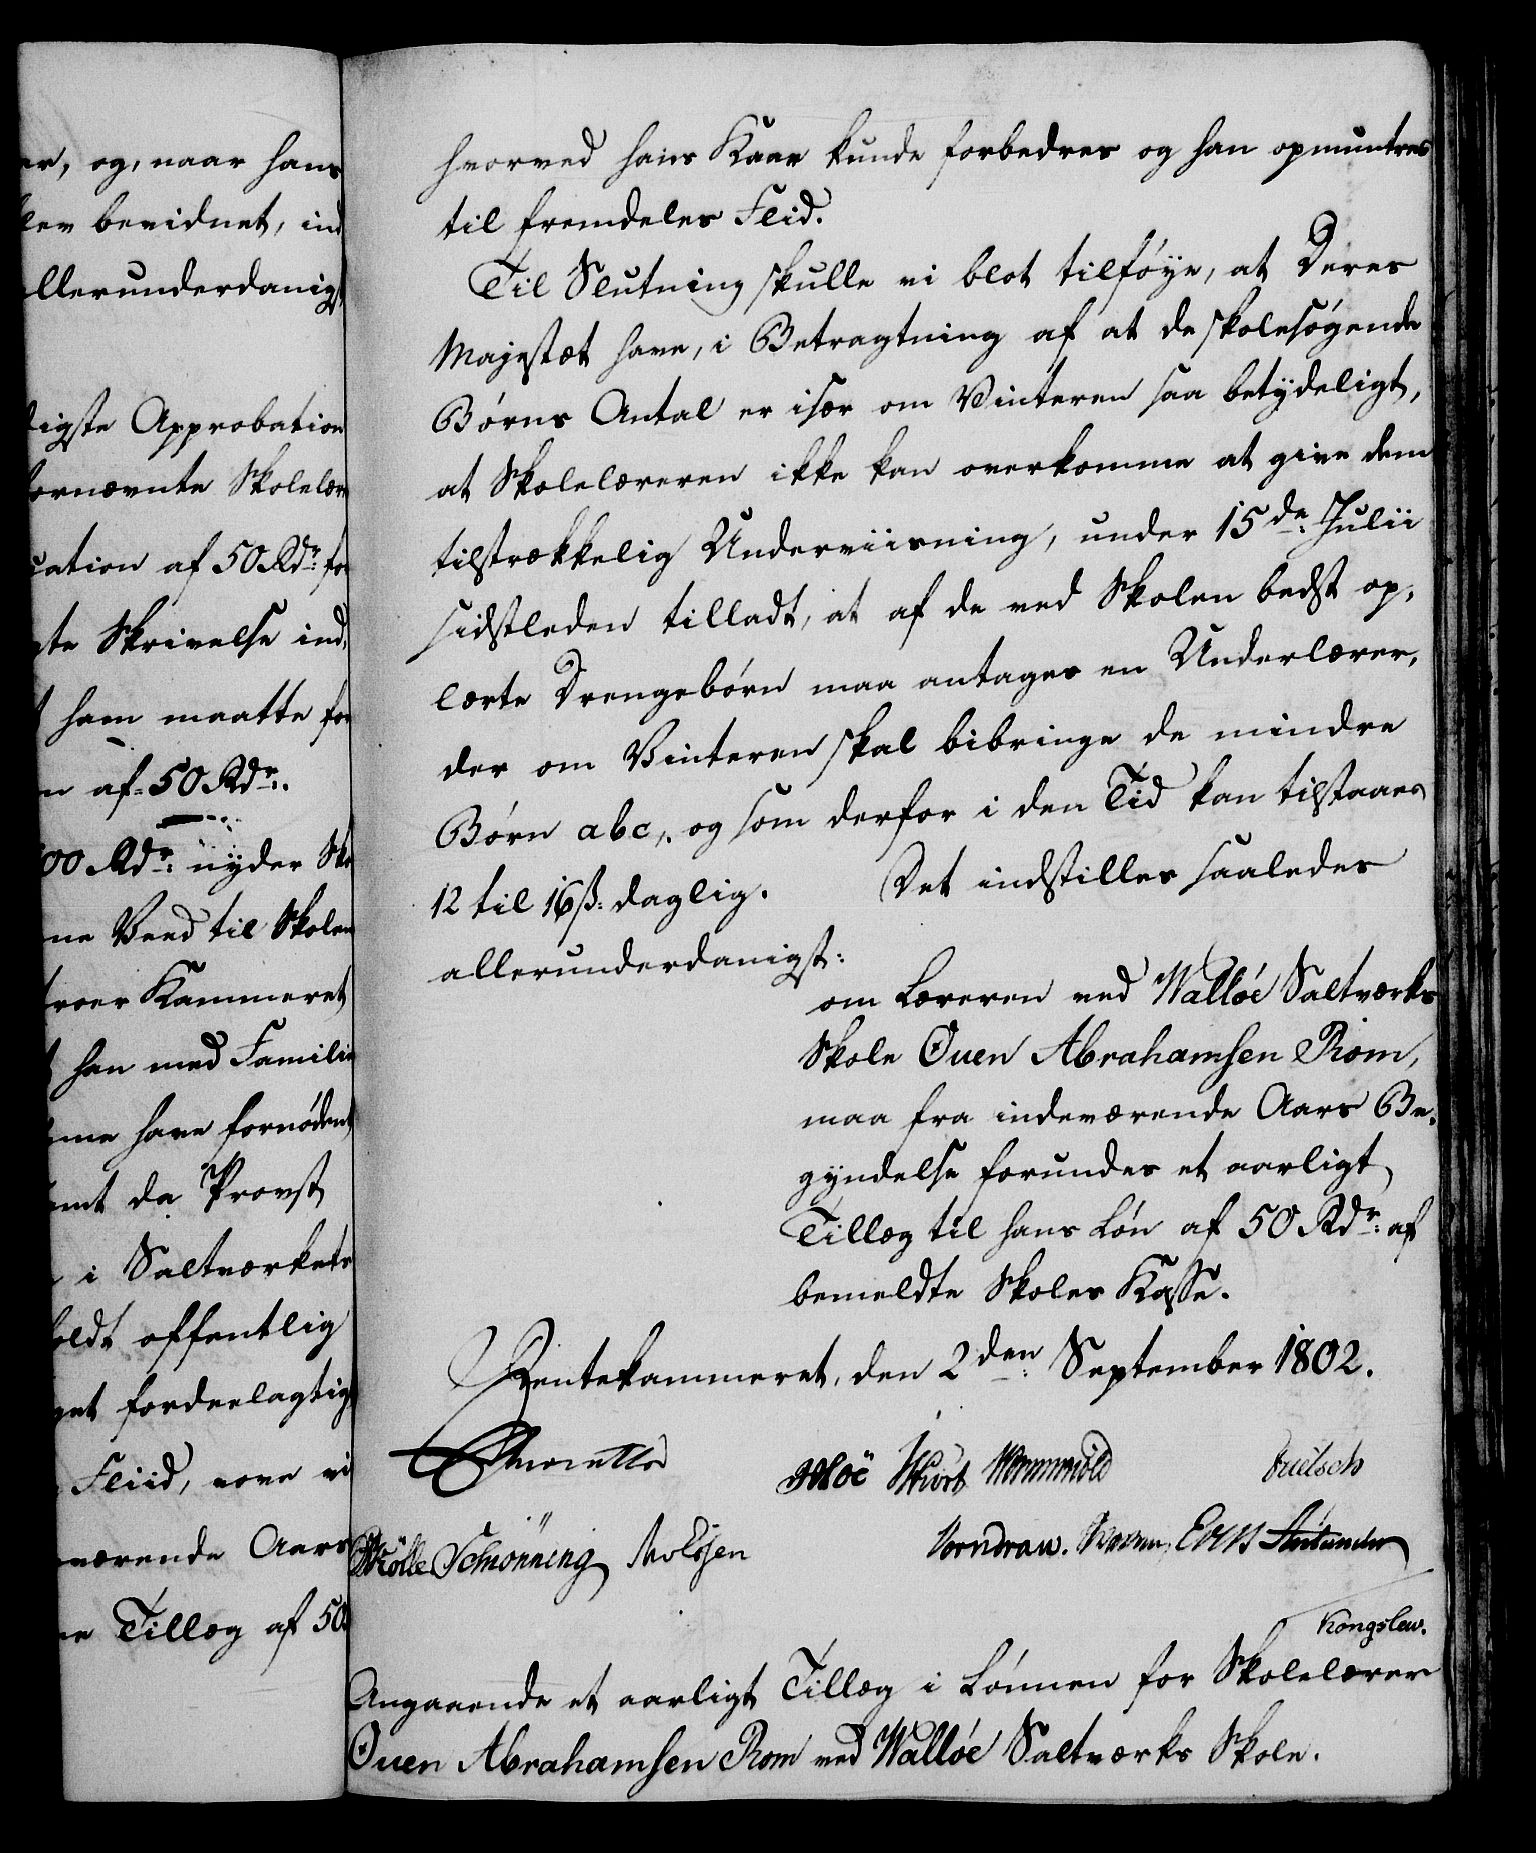 er, og, naar hans
blev bevidnet, ind
allerunderdanigst
digste Approbation
fornævnte Skolelær
cation af 50 Rdr: for
gte Skrivelse ind,
ham maatte for
n af 50 Rdr.
00 Rdr: nyder Sko
ne Veed til Skolen
troer Kammeret
han med Familie
me have fornødent
samt da Provst
i Saltværkets
holdt offentlig
get fordeelagtig
Fliid, vove vi
værende Aars
ne Tillæg af 50
hvorved hans Kaar kunde forbedres og han opmuntres
til fremdeles Flid.
Til Slutning skulle vi blot tilføye, at Deres
Majestæt have, i Betragtning af at de skolesøgende
Børns Antal er især om Vinteren saa betydeligt,
at Skolelæreren ikke kan overkomme at give dem
tilstrækkelig Underviisning, under 15de Julii
sidstleden tilladt, at af de ved Skolen bedst op-
lærte Drengebørn maa antages en Underlærer,
der om Vinteren skal bibringe de mindre
Børn abc, og som derfor i den Tid kan tilstaaes
12 til 16 ß: daglig. Det indstilles saaledes
allerunderdanigst:
om Læreren ved Walløe Saltværks
Skole Ouen Abrahamsen Rom,
maa fra indeværende Aars Be-
gyndelse forundes et aarligt
Tillæg til hans Løn af 50 Rdr: af
bemeldte Skoles Kasse.
Rentekammeret, den 2den September 1802.
Schønning
Vorndran.
Kongslew.
Angaaende et aarligt Tillæg i Lønnen for Skolelærer
Ouen Abrahamsen Rom ved Walløe Saltværks Skole.